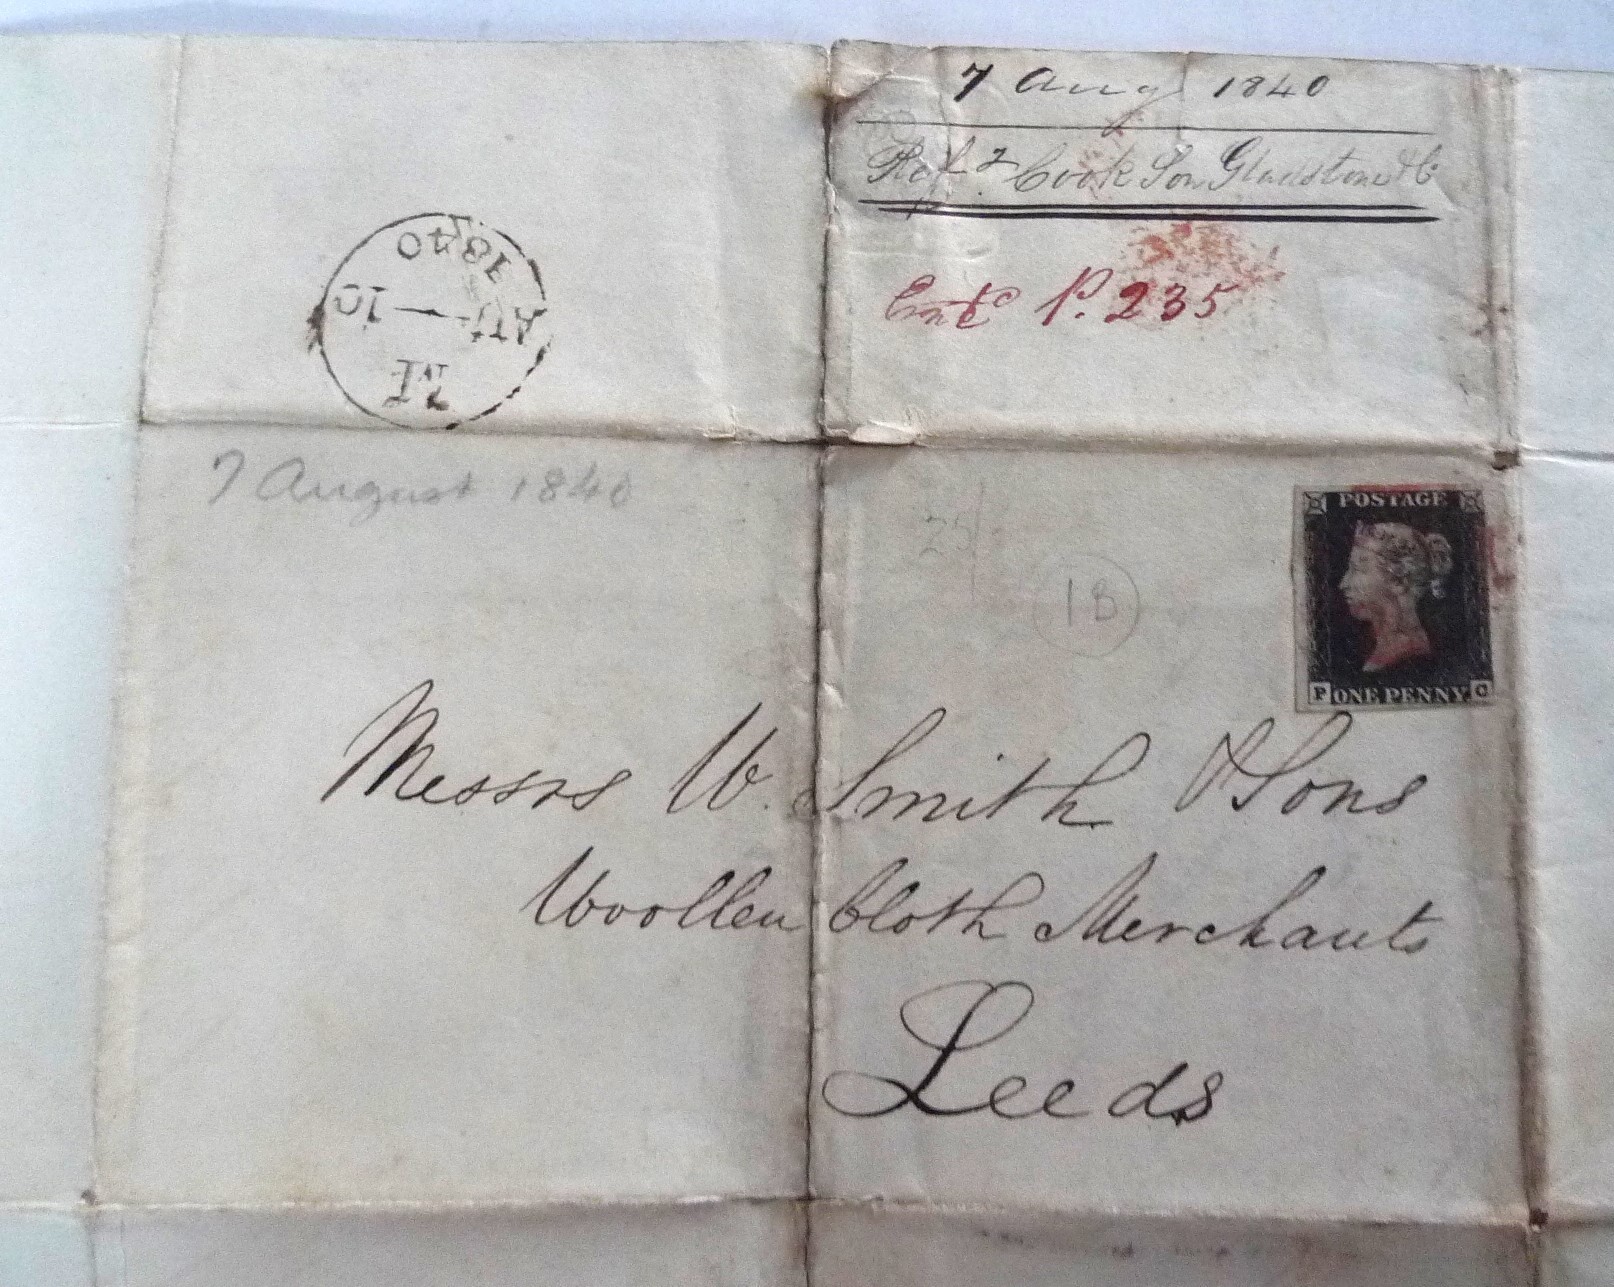 7 Aug 1840
Cook Son Gladstone & Co
Entd P. 235
1840
AU 10
7 August 1840
25
1B
POSTAGE
P ONE PENNY C
Messrs W. Smith & Sons
Woollen Cloth Merchants
Leeds